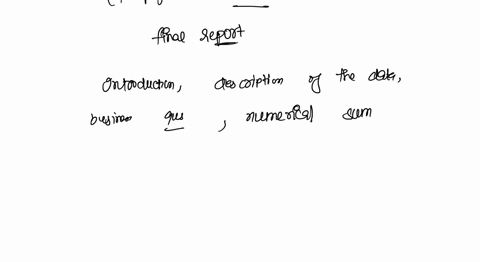 final report
Introduction, description of the data,
business ques, numerical sum